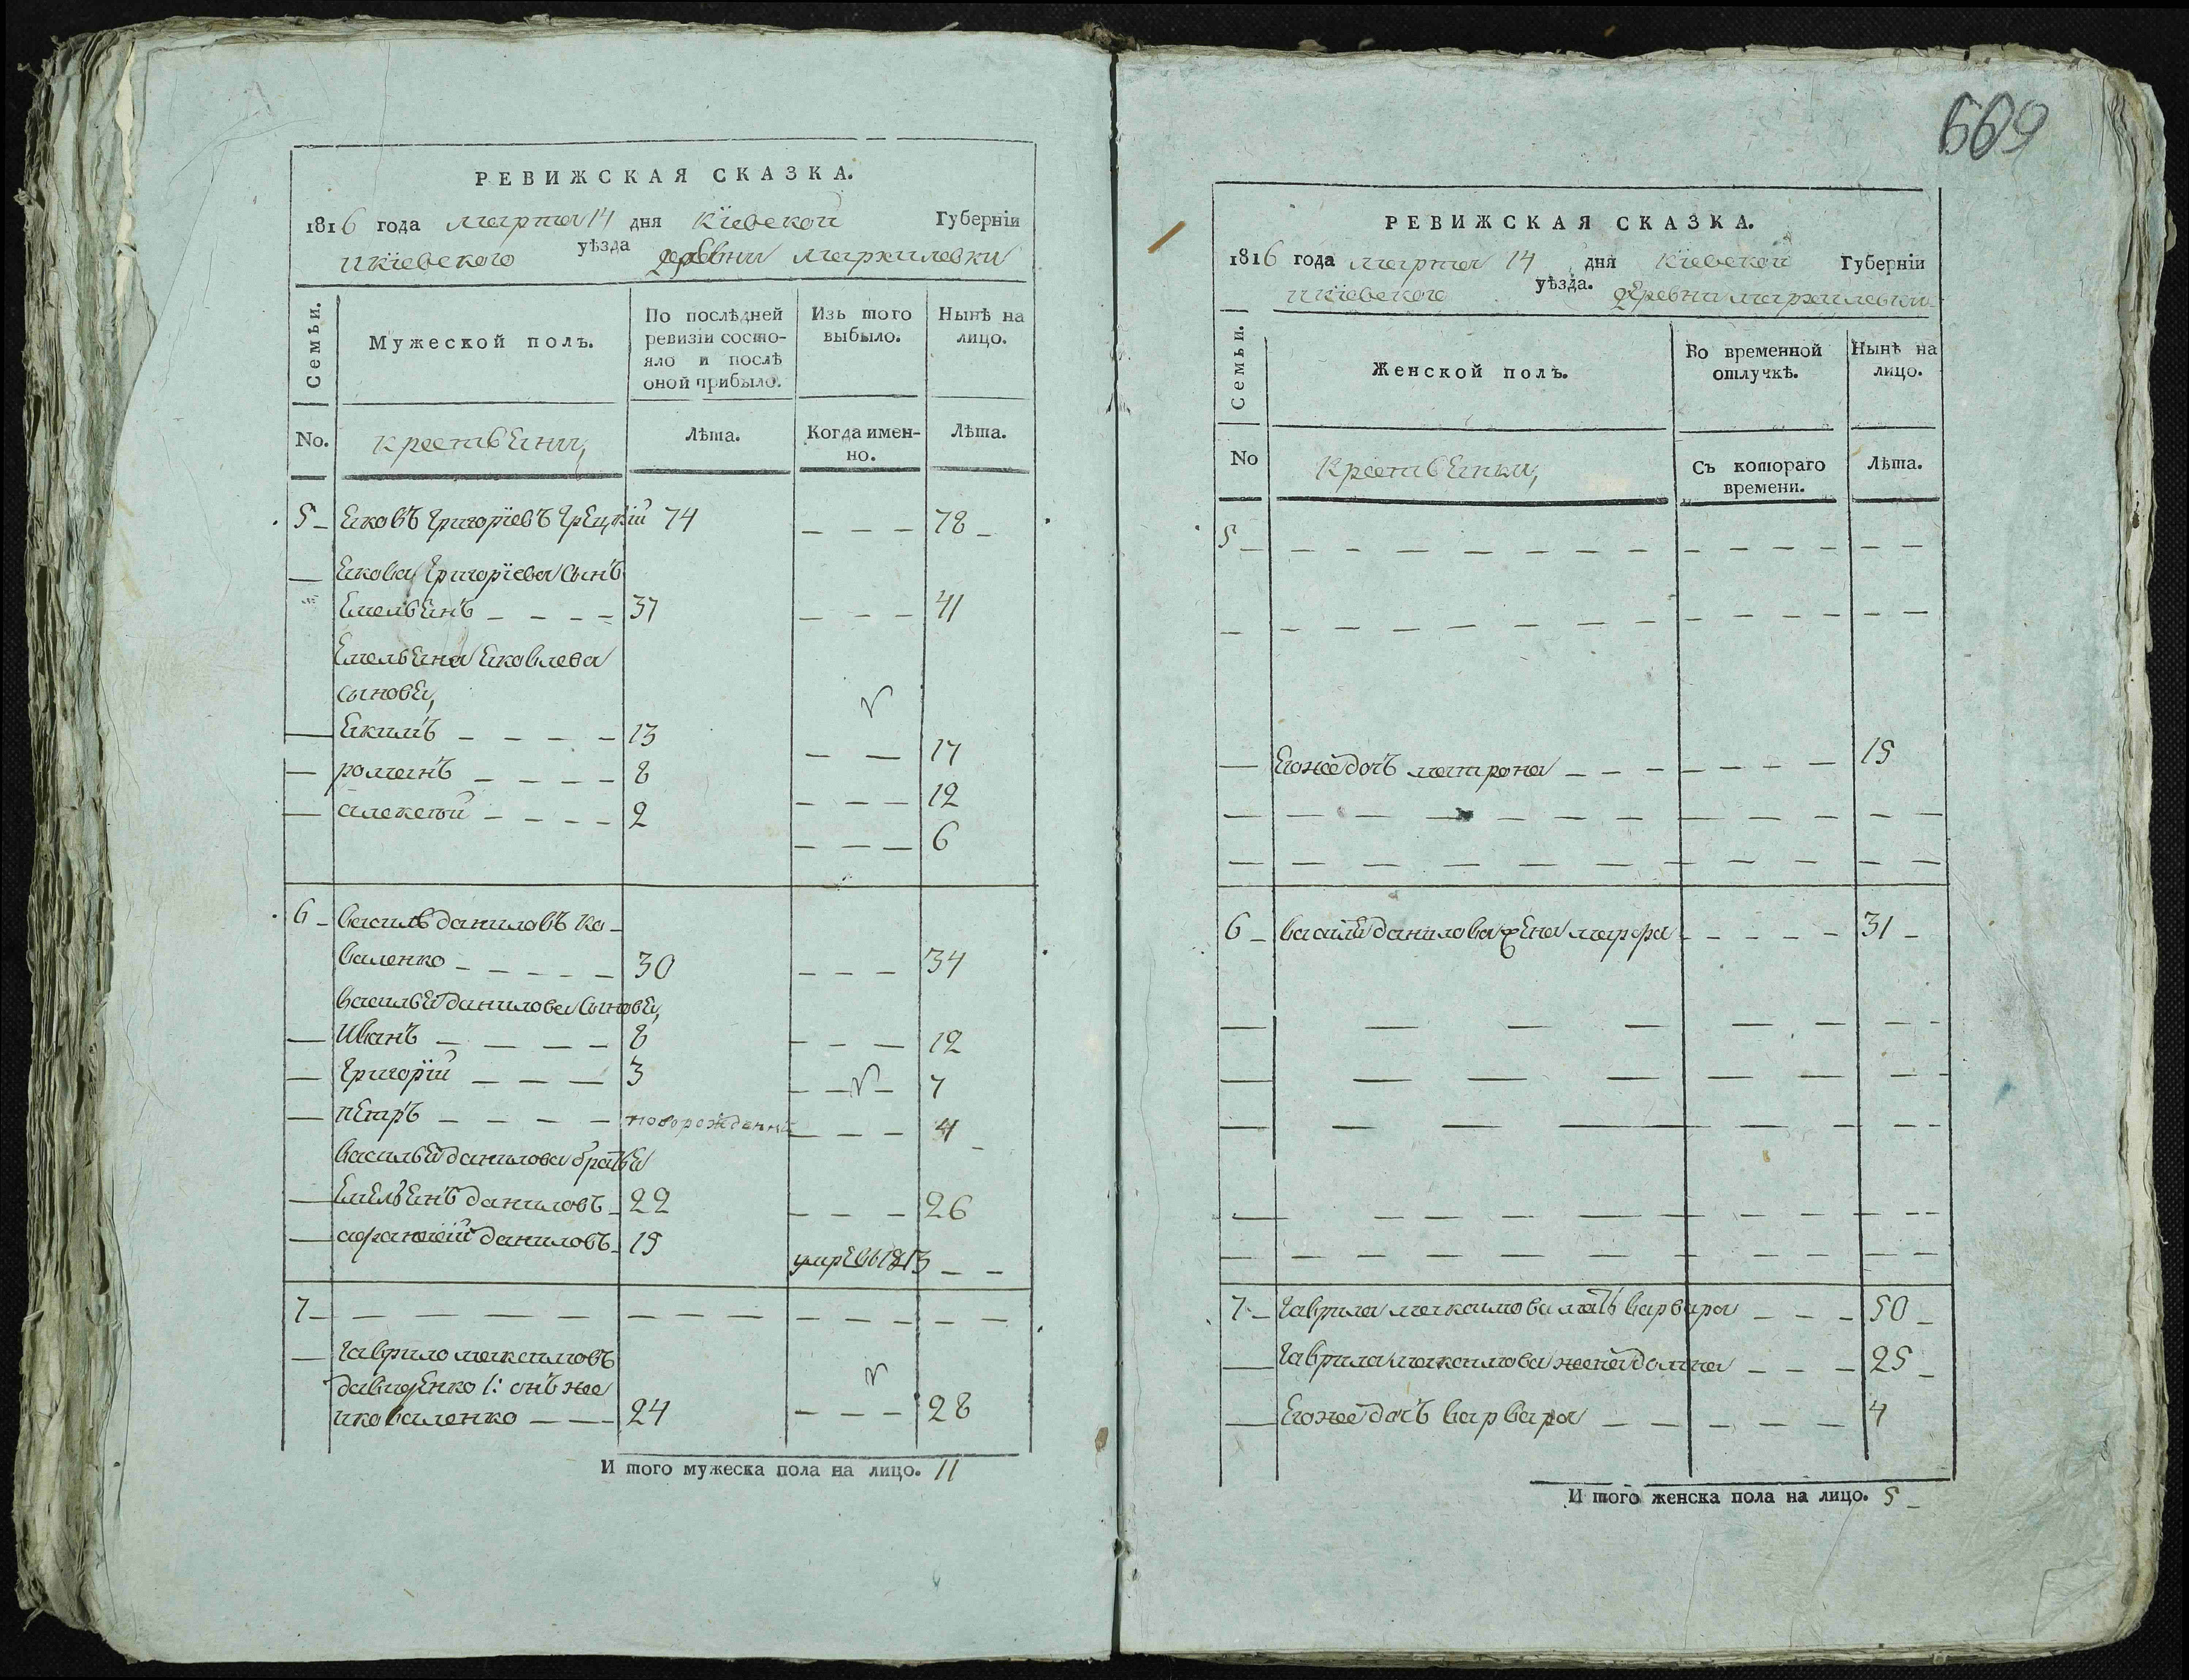 РЕВИЖСКАЯ СКАЗКА.
1816 года марта 14 дня Кїевской Губернїи
и Кїевского уѣзда деревни Мархалевки
Семьи.
Мужеской полъ.
По послѣдней ревизїи состояло и послѣ оной прибыло.
Изъ того выбыло.
Нынѣ на лицо.
No.
крестьяни,
Лѣта.
Когда именно.
Лѣта.
5 Яковъ Григорїевъ Грецкїй 74 78
Якова Григорїева сынъ
Емельянъ 37 41
Емельяна Яковлева
сыновя,
Якимъ 13 17
романъ 8 12
алексѣй 2 6
6 василь даниловъ ко-
валенко 30 34
василья данилова сыновя,
Иванъ 8 12
Григорїй 3 7
петръ новорожденны 4
василья данилова братья
Емельянъ даниловъ 22 26
афанасїй даниловъ 15 умре въ 1813
7
гаврило максимовъ
давиденко /: онъ же
и коваленко 24 28
И того мужеска пола на лицо. 11
669
РЕВИЖСКАЯ СКАЗКА.
1816 года марта 14 дня Кїевской Губернїи
и Кїевского уѣзда. деревни мархалевки
Семьи.
Женской полъ.
Во временной отлучкѣ.
Нынѣ на лицо.
No
Крестьянки,
Съ котораго времени.
Лѣта.
5
Егоже дочь матрона 15
6 василя данилова жена марфа 31
7 гаврила максимова мать варвара 50
гаврила максимова жена домна 25
Егоже дочь варвара 4
И того женска пола на лицо. 5